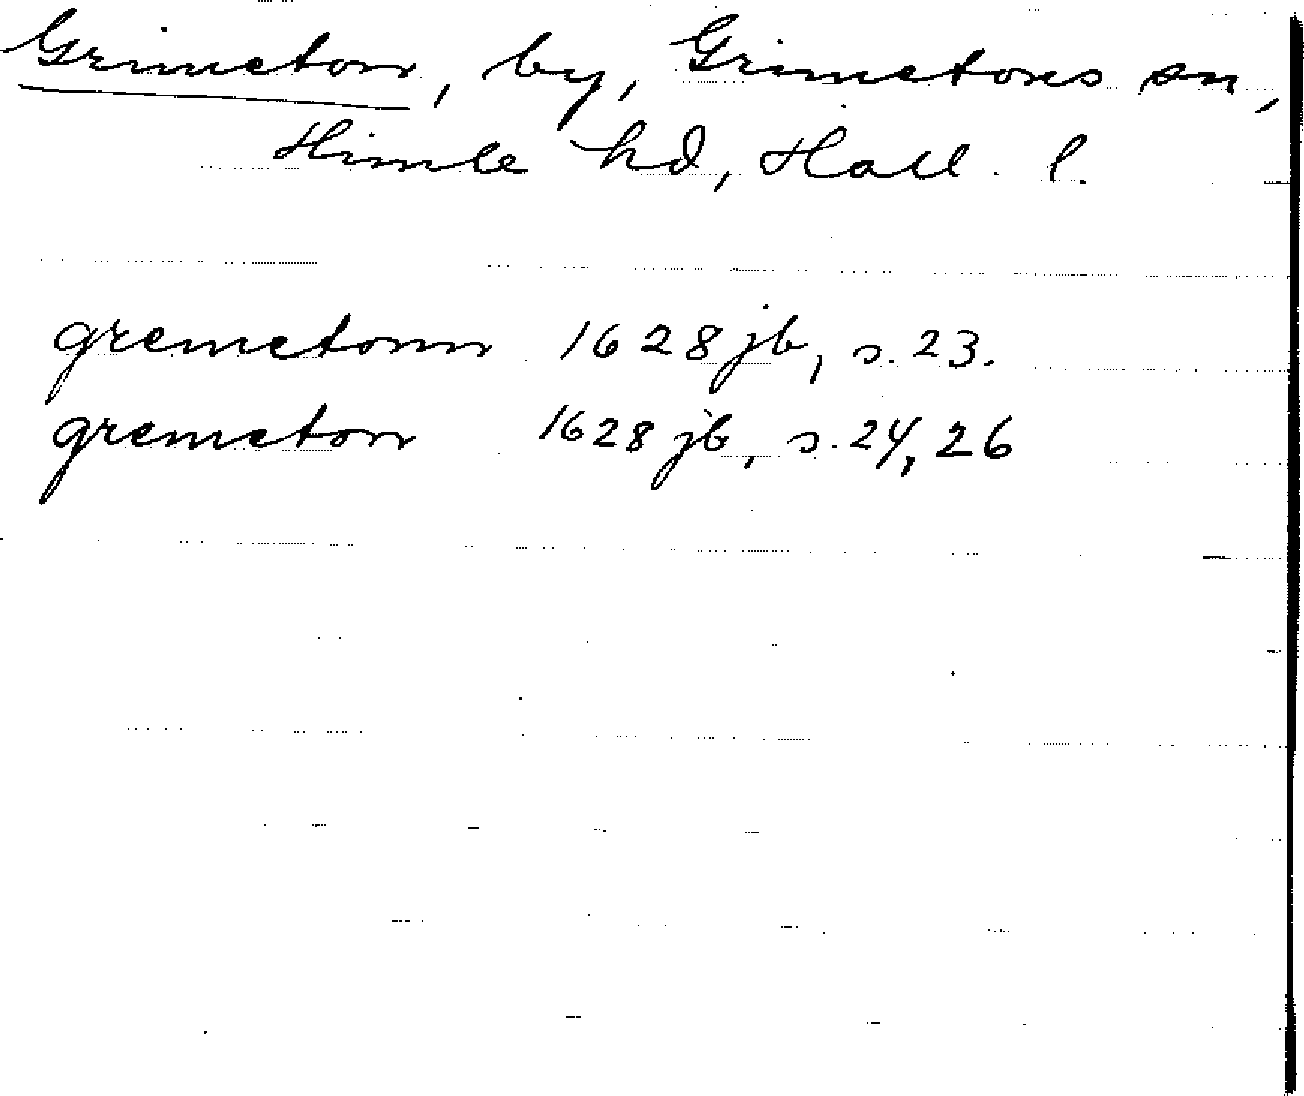 Grimeton, by, Grimetons sn,
Himle hd, Hall. l.
gremetonn 1628 jb, s. 23.
gremeton 1628 jb, s. 24, 26